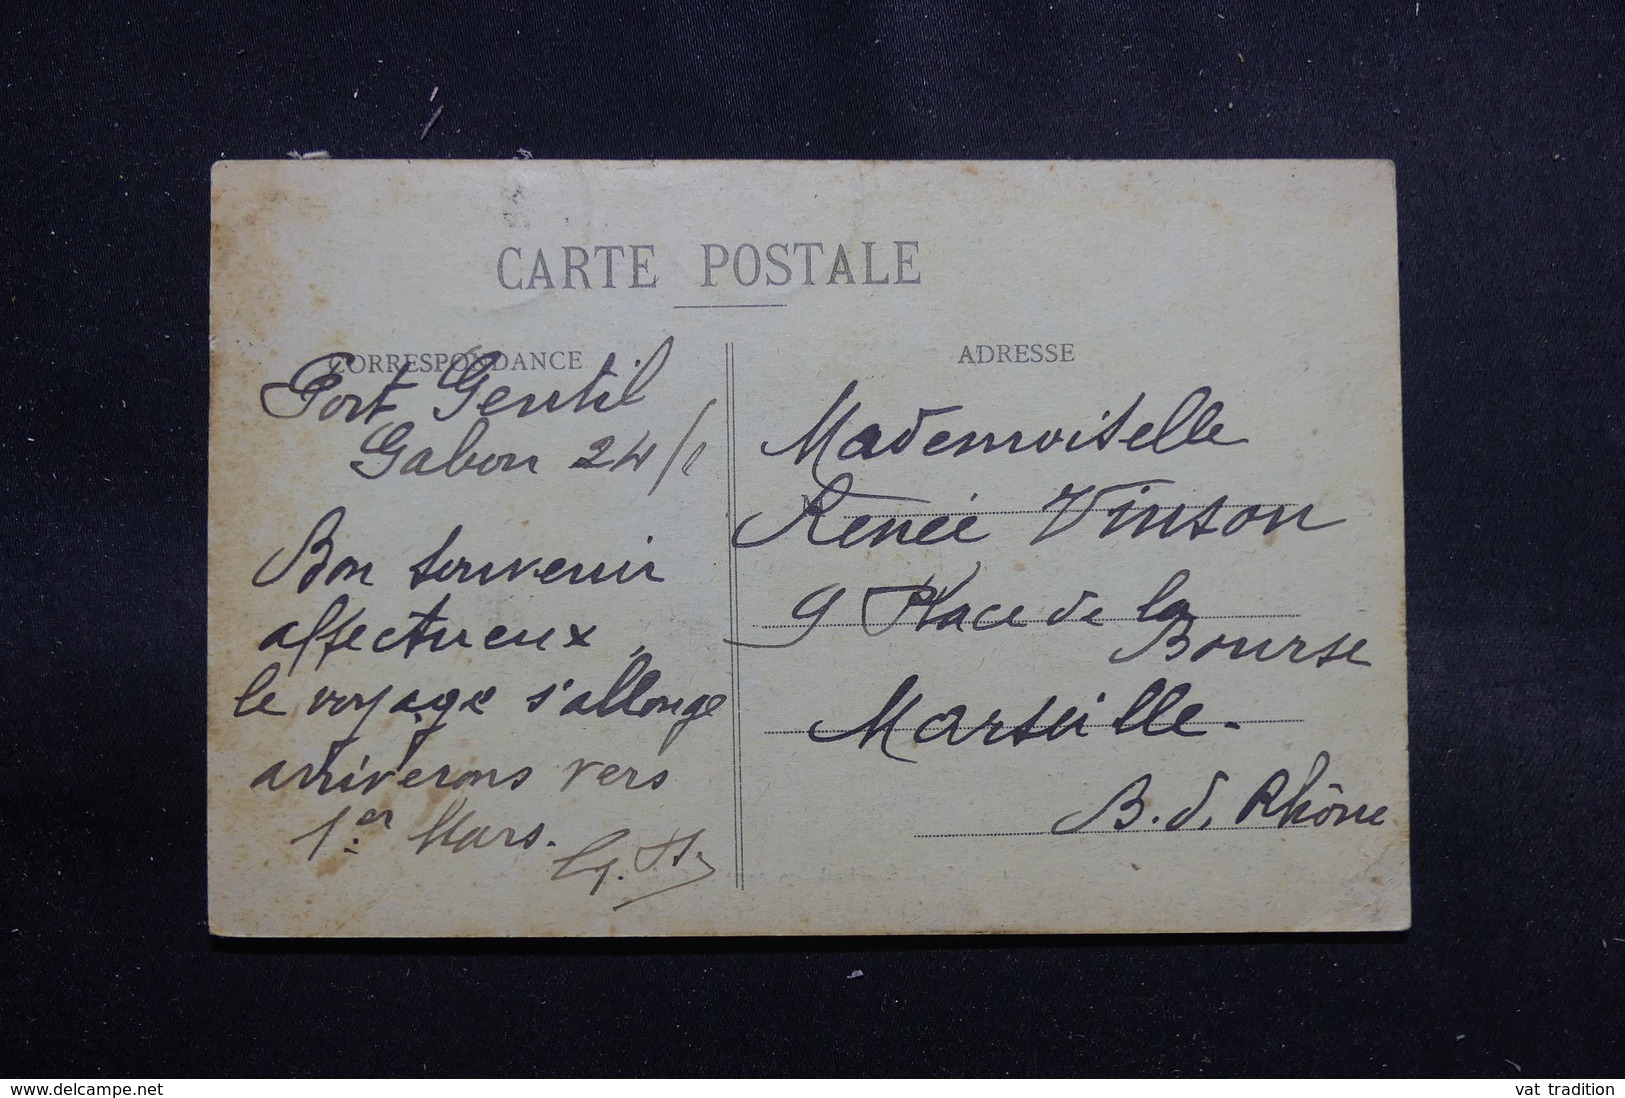 CARTE POSTALE
CORRESPONDANCE
Port Gentil
Gabon 24/1
Bon souvenir
affectueux,
le voyage s'allonge
arriverons vers
1er Mars.
ADRESSE
Mademoiselle
Renée Vinson
9 Place de la
Bourse
Marseille.
B. d. Rhône
www.delcampe.net
vat tradition